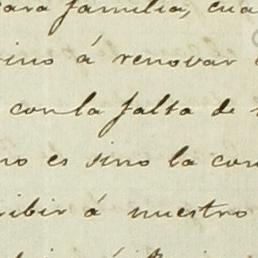 para familia, cua
vino á renovar
con la falta de
no es sino la con
ribir á nuestro